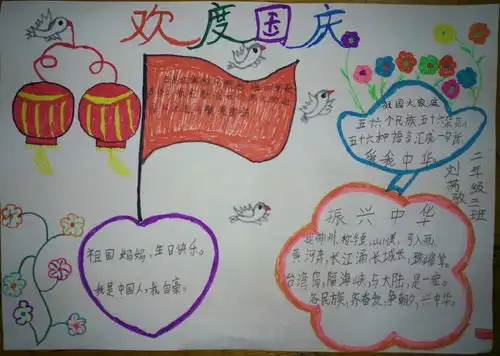 欢度国庆
祖国大家庭
五十六个民族五十六朵花,
五十六种语言汇成一句话,
爱我中华。
二年级三班
刘
振兴中华
我神州,称华夏,山川美,可入画。
黄河奔,长江涌,长城长,珠峰耸。
台湾岛,隔海峡,与大陆,是一家。
各民族,齐奋发,争朝夕,兴中华。
祖国妈妈,生日快乐。
我是中国人,我自豪。